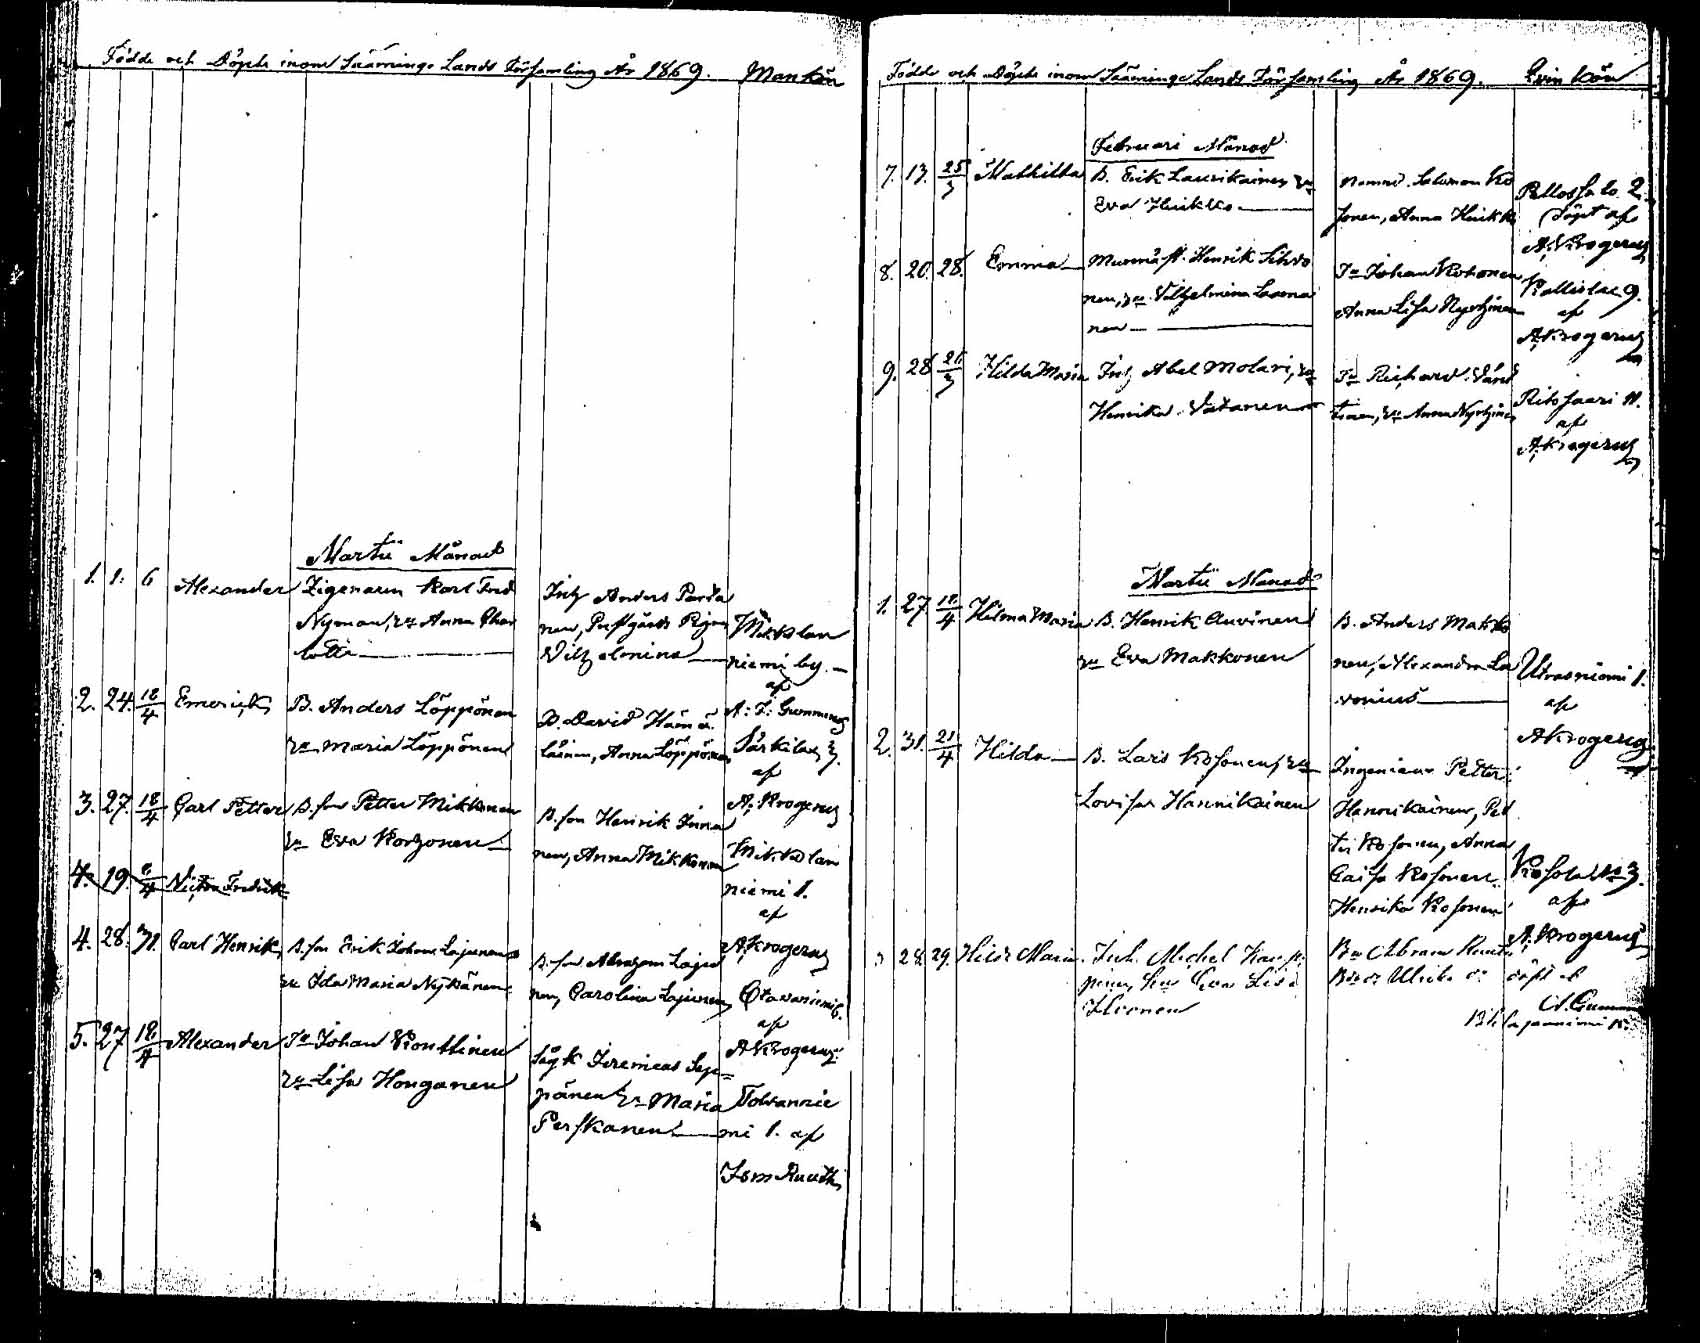 Födde och Döpte inom Sääminge Lands Församling År 1869. Mankön
Martii Månad
1. 1. 6 Alexander Zigenaren Karl Fred
Nyman, Anna Char
lotta
Inh Anders Parta
nen,
Vilhelmina
Mikkolan
niemi by.
af
A. J. Gummerus
2. 24. 18/4 Emerick B. Anders Löppönen
Maria Löppönen
B. David Hämä
läinen, Anna Löppönen
Särkilax 3.
af
A. Krogerus
3. 27. 18/4 Carl Petter B. son Petter Mikkonen
Eva Korhonen
B. son Henrik Inna
nen, Anna Mikkonen
Mikkolan
niemi 1.
af
A. Krogerus
4. 19. Fredrik
4. 28. 31. Carl Henrik B. son Erik Johan Lajunen
Ida Maria Nykänen
B. son Abraham Laju
nen, Carolina Lajunen
Otavaniemi 6.
af
A. Krogerus
5. 27 18/4 Alexander Johan Konttinen
Lisa Honganen
Jeremias Sep
pänen Maria
Perskanen
Tolvannie
mi 1. af
Ruuth
Födde och Döpte inom Sääminge Lands Församling År 1869. Qvinkön
Februari Månad
7. 13. 25/3 Mathilda B. Erik Laurikainen
Eva Huikko
Salomon Ko
sonen, Anna Huikko
Pellossalo 2.
döpt af
A. Krogerus
8. 20. 28. Emma Henrik Sihvo
nen, Vilhelmina Laama
nen
Johan Kohonen
Anna Lisa Nyrhinen
Kallislax 9.
af
A. Krogerus
9. 28 21/3 Hilda Maria Inh Abel Molari,
Henrika Vatanen
Richard
Anna Nyrhinen
Ritosaari 11.
af
A. Krogerus
Martii Månad
1. 27. 18/4 Hilma Maria B. Henrik Auvinen
Eva Makkonen
B. Anders Makko
nen, Alexandra La
vonius
Utrasniemi 1.
af
A. Krogerus
2. 31. 21/4 Hilda B. Lars Kosonen,
Lovisa Hannikainen
Ingenieur Petter
Hannikainen, Pet
ter Kosonen, Anna
Caisa Kosonen
Henrika Kosonen
Kosola No 3.
af
A. Krogerus
3 28. 29. Hilda Maria Inh. Michel Kaup
pinen, Eva Lisa
Abram
Ulrika
döpt af